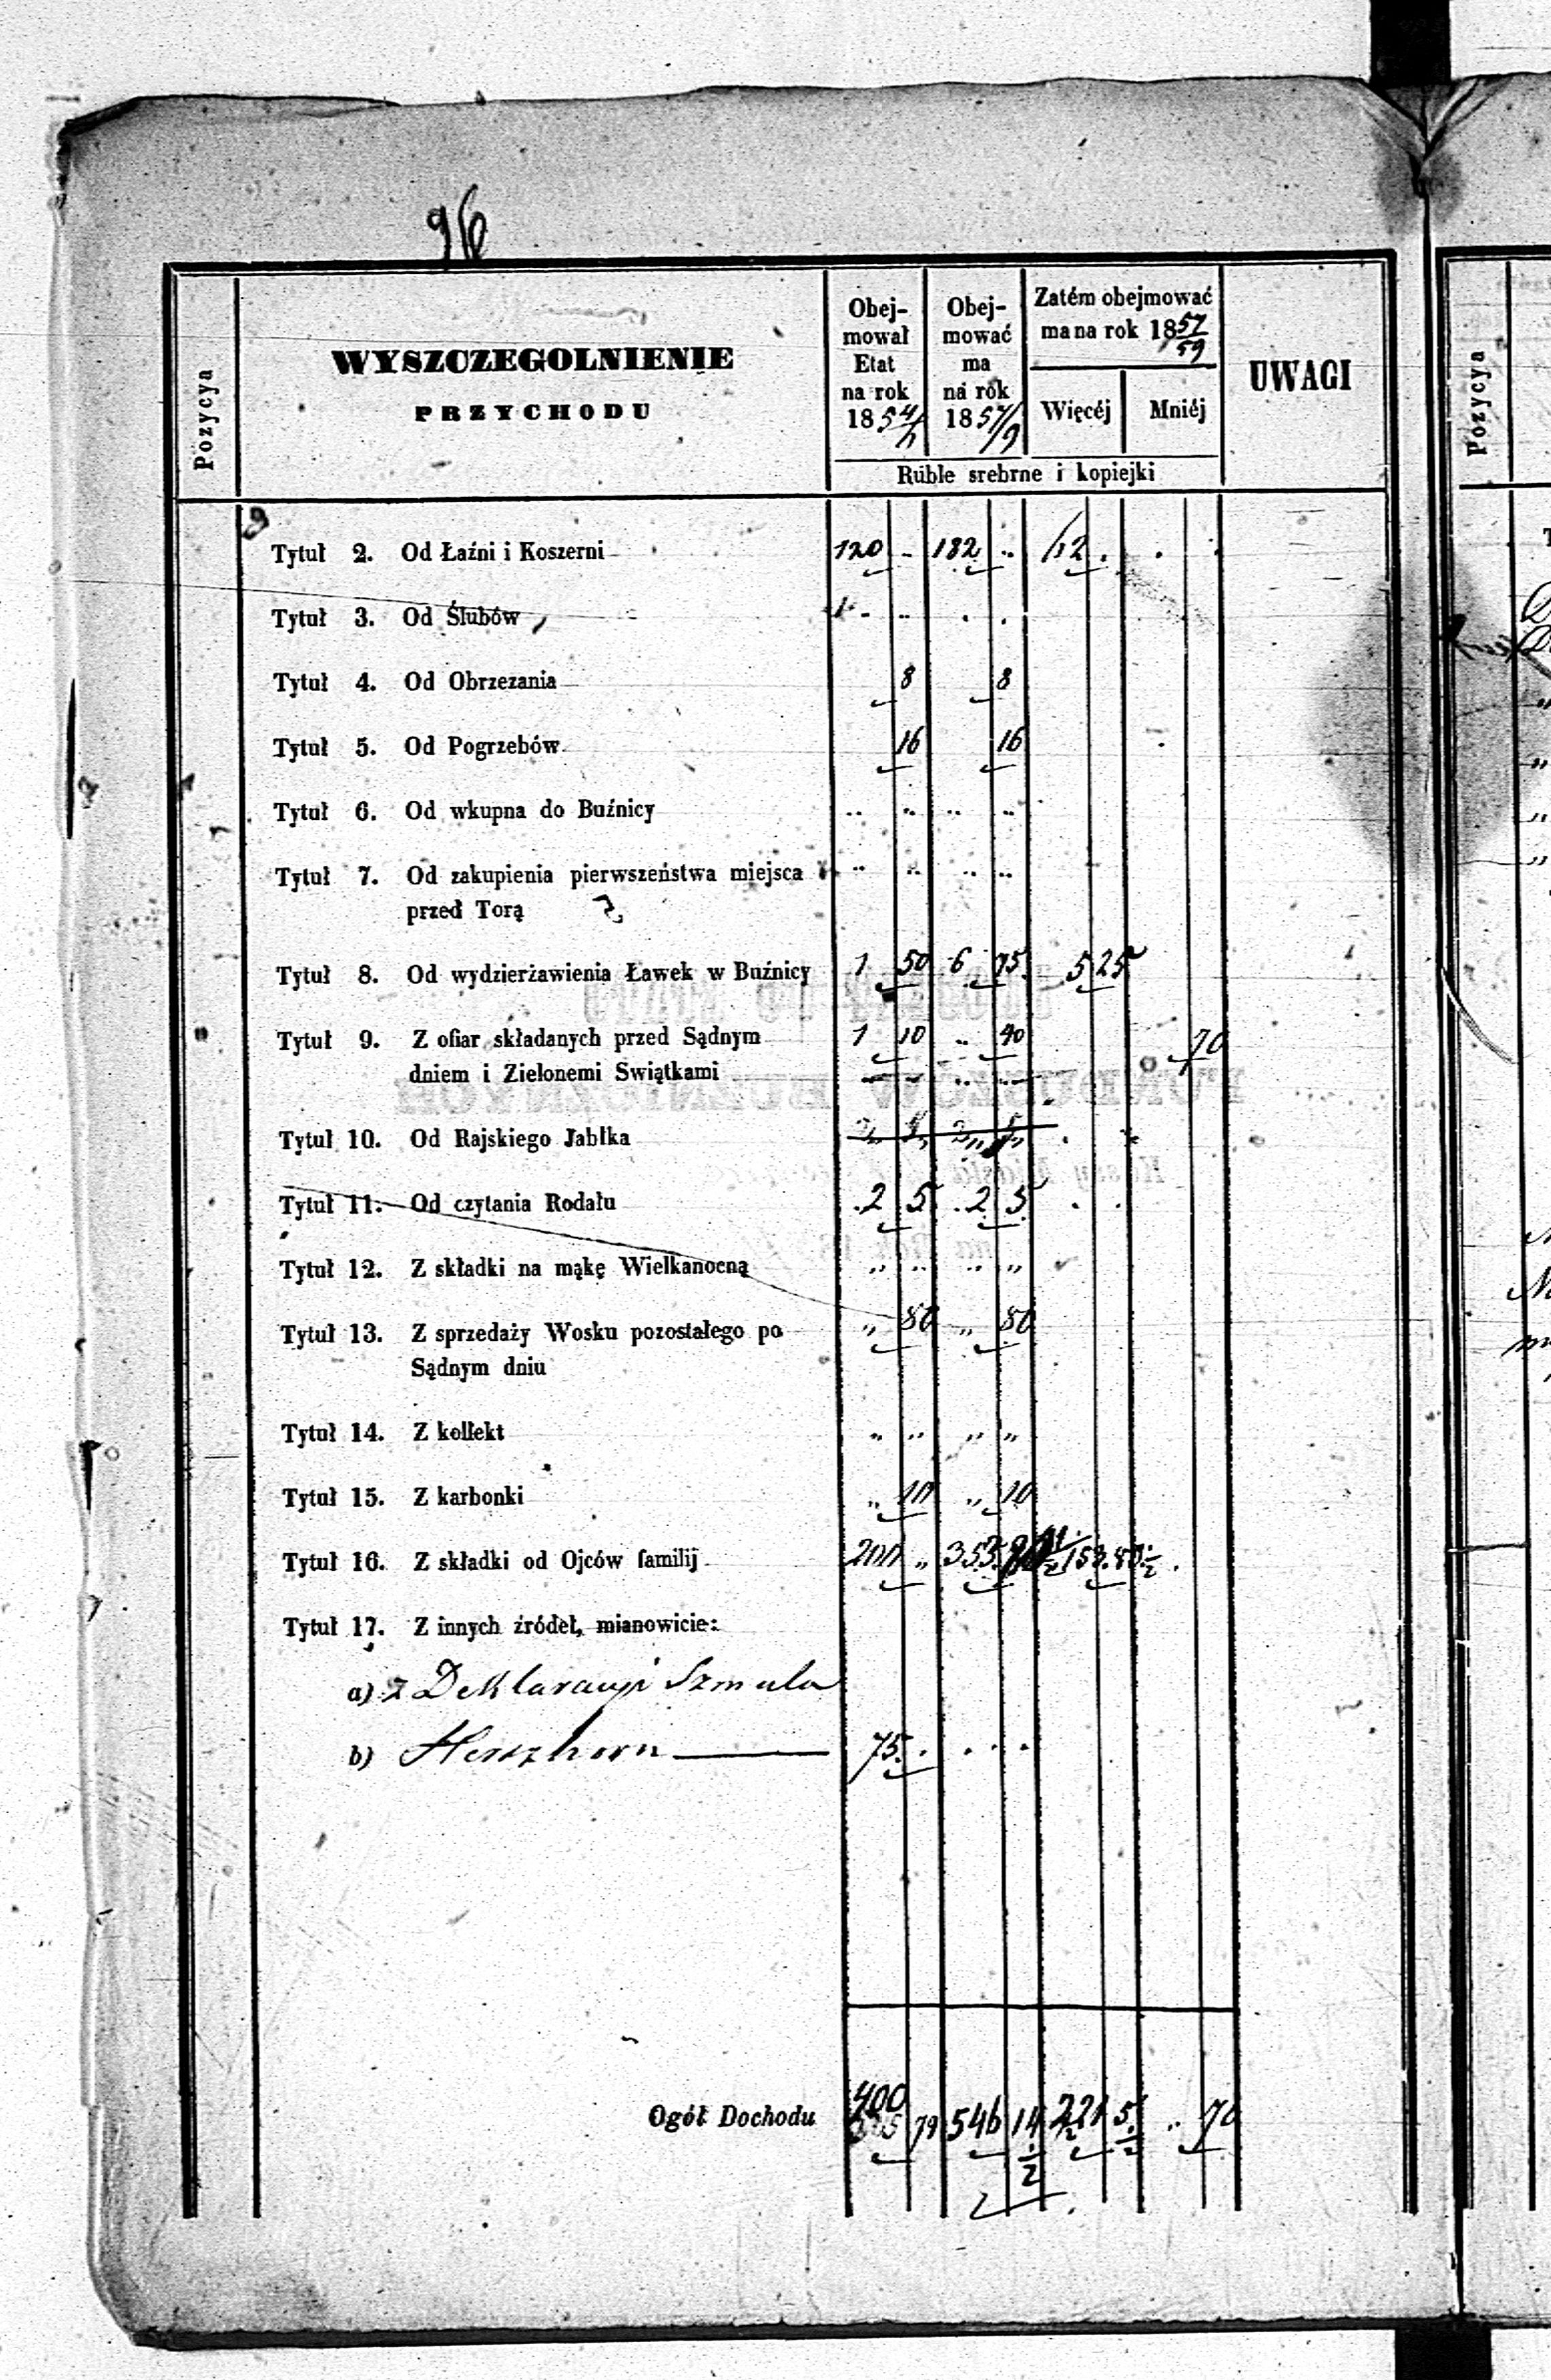 96
Pozycya
WYSZCZEGOLNIENIE
PRZYCHODU
Obej-
mował
Etat
na rok
1854/
Obej-
mować
ma
na rok
1857/9
Zatém obejmować
ma na rok 1857/59
Więcéj
Mniéj
Ruble srebrne i kopiejki
UWAGI
Pozycya
Tytuł 2. Od Łaźni i Koszerni 120 182
Tytuł 3. Od Ślubów
Tytuł 4. Od Obrzezania 8 8
Tytuł 5. Od Pogrzebów 16 16
Tytuł 6. Od wkupna do Buźnicy
Tytuł 7. Od zakupienia pierwszeństwa miejsca
przed Torą
Tytuł 8. Od wydzierżawienia Ławek w Buźnicy 1 50 6 75 5 25
Tytuł 9. Z ofiar składanych przed Sądnym 1 10 40 70
dniem i Zielonemi Swiątkami
Tytuł 10. Od Rajskiego Jabłka
Tytuł 11. Od czytania Rodału 2 5 2 5
Tytuł 12. Z składki na mąkę Wielkanocną
Tytuł 13. Z sprzedaży Wosku pozostałego po „ 80 „ 80
Sądnym dniu
Tytuł 14. Z kollekt
Tytuł 15. Z karbonki „ 10 „ 10
Tytuł 16. Z składki od Ojców familij 200 „ 353
Tytuł 17. Z innych źródeł, mianowicie:
a) z Deklaracyi Szmula
b) Herszhorn 75
Ogół Dochodu 400 79 546 14 1/2 221 5 1/2 70